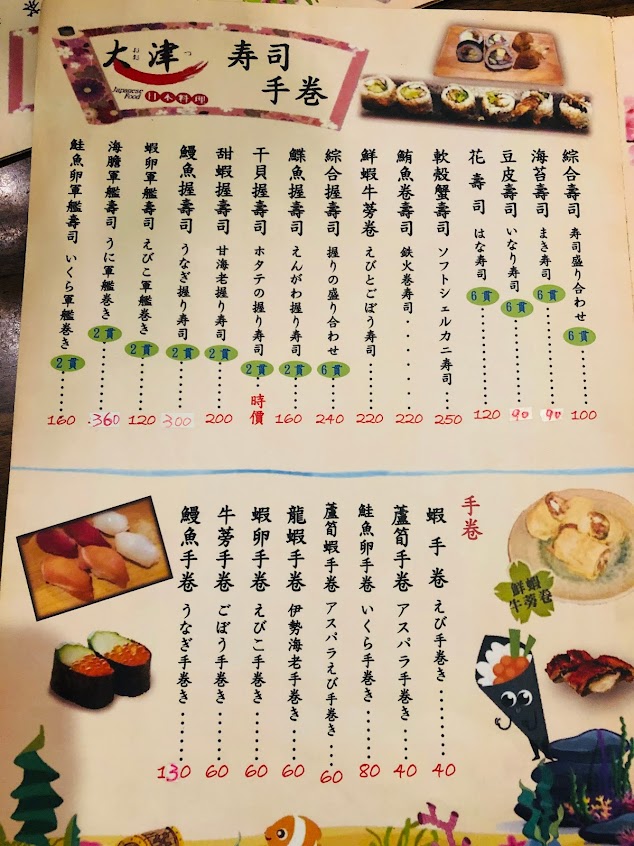 大津
おお つ
Japanese Food
日本料理
寿司
手巻
綜合壽司 寿司盛り合わせ 6貫 100
海苔壽司 まき寿司 6貫 90
豆皮壽司 いなり寿司 6貫 90
花壽司 はな寿司 6貫 120
軟殼蟹壽司 ソフトシェルカニ寿司 250
鮪魚卷壽司 鉄火巻寿司 220
鮮蝦牛蒡卷 えびとごぼう寿司 220
綜合握壽司 握りの盛り合わせ 6貫 240
鰈魚握壽司 えんがわ握り寿司 2貫 160
干貝握壽司 ホタテの握り寿司 2貫 時價
甜蝦握壽司 甘海老握り寿司 2貫 200
鰻魚握壽司 うなぎ握り寿司 2貫 300
蝦卵軍艦壽司 えびこ軍艦巻き 2貫 120
海膽軍艦壽司 うに軍艦巻き 2貫 360
鮭魚卵軍艦壽司 いくら軍艦巻き 2貫 160
手卷
蝦手卷 えび手巻き 40
蘆筍手卷 アスパラ手巻き 40
鮭魚卵手卷 いくら手巻き 80
蘆筍蝦手卷 アスパラえび手巻き 60
龍蝦手卷 伊勢海老手巻き 60
蝦卵手卷 えびこ手巻き 60
牛蒡手卷 ごぼう手巻き 60
鰻魚手卷 うなぎ手巻き 130
鮮蝦
牛蒡卷